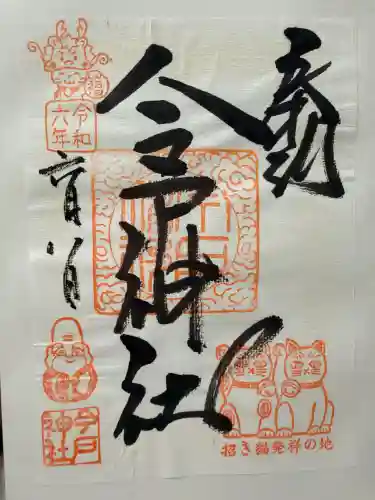 奉拝
今戸神社
令和
六年
六月八日
今戸
神社
招き猫発祥の地